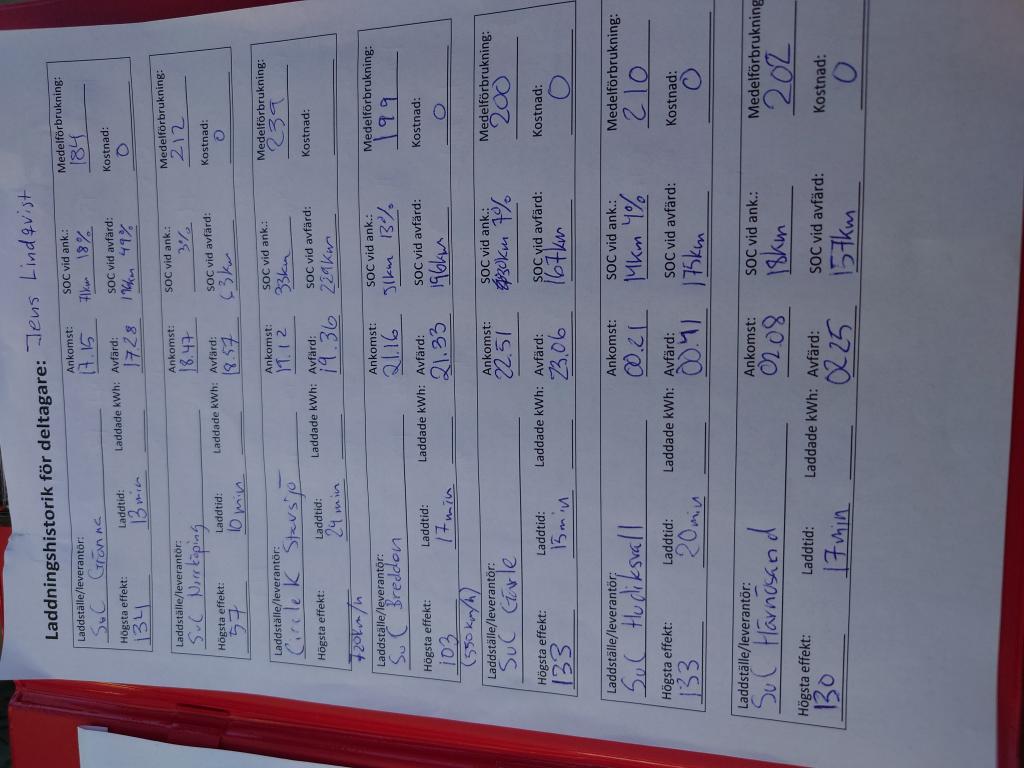 Laddningshistorik för deltagare: Jens Lindqvist
Laddställe/leverantör: Ankomst: SOC vid ank.: Medelförbrukning:
SuC Gränna 17.15 71km 18% 184
Högsta effekt: Laddtid: Laddade kWh: Avfärd: SOC vid avfärd: Kostnad:
134 13 min 17.28 49% 0
Laddställe/leverantör: Ankomst: SOC vid ank.: Medelförbrukning:
SuC Norrköping 18.47 3% 212
Högsta effekt: Laddtid: Laddade kWh: Avfärd: SOC vid avfärd: Kostnad:
57 10 min 18.57 63km 0
Laddställe/leverantör: Ankomst: SOC vid ank.: Medelförbrukning:
Circle K Stavsjö 19.12 33km 239
Högsta effekt: Laddtid: Laddade kWh: Avfärd: SOC vid avfärd: Kostnad:
24 min 19.36 229km
720km/h
Laddställe/leverantör: Ankomst: SOC vid ank.: Medelförbrukning:
SuC Bredden 21.16 51km 13% 199
Högsta effekt: Laddtid: Laddade kWh: Avfärd: SOC vid avfärd: Kostnad:
103 17 min 21.33 196km 0
(550 km/h)
Laddställe/leverantör: Ankomst: SOC vid ank.: Medelförbrukning:
SuC Gävle 22.51 30km 7% 200
Högsta effekt: Laddtid: Laddade kWh: Avfärd: SOC vid avfärd: Kostnad:
133 15 min 23.06 167km 0
Laddställe/leverantör: Ankomst: SOC vid ank.: Medelförbrukning:
SuC Hudiksvall 00.21 14km 4% 210
Högsta effekt: Laddtid: Laddade kWh: Avfärd: SOC vid avfärd: Kostnad:
133 20 min 00.41 175km 0
Laddställe/leverantör: Ankomst: SOC vid ank.: Medelförbrukning
SuC Härnösand 02.08 18km 202
Högsta effekt: Laddtid: Laddade kWh: Avfärd: SOC vid avfärd: Kostnad:
130 17 min 02.25 157km 0